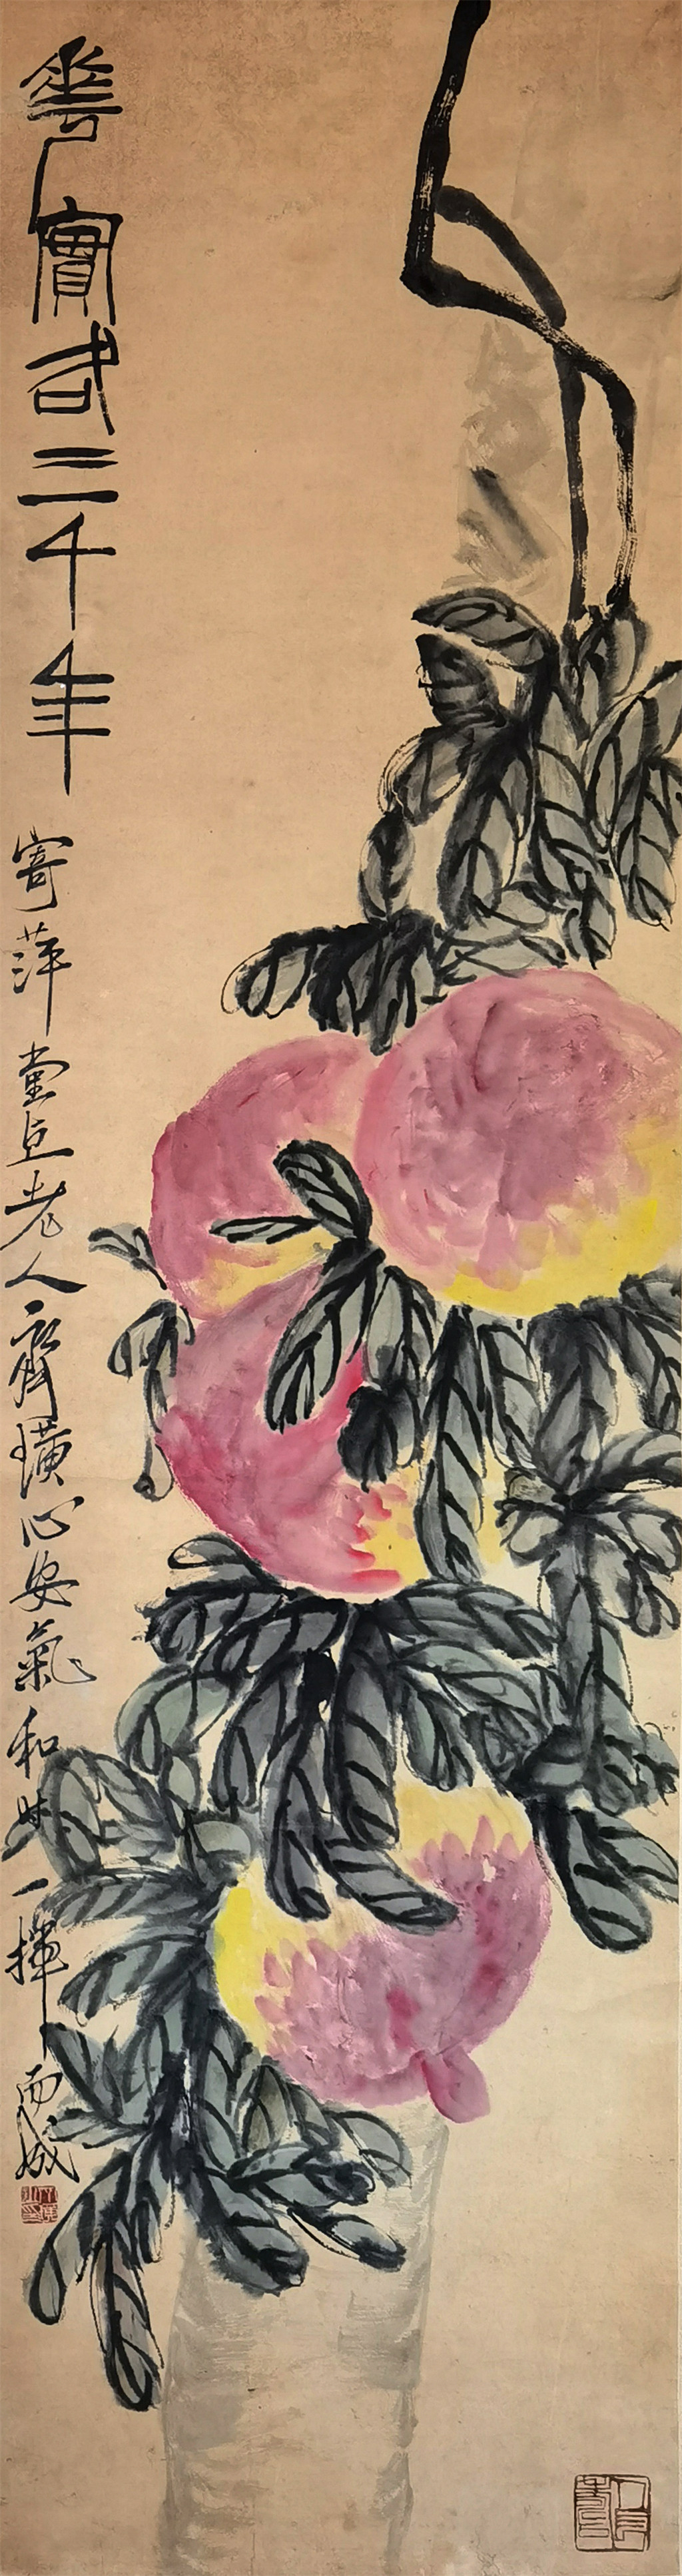 華實各三千年
寄萍堂上老人齊璜心安氣和時一揮而成